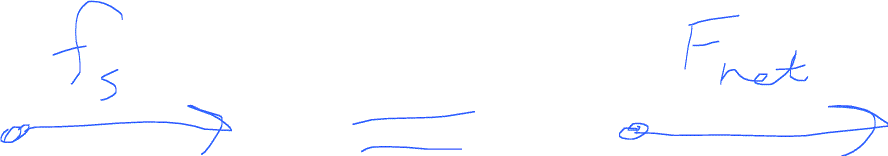 f_s = F_net